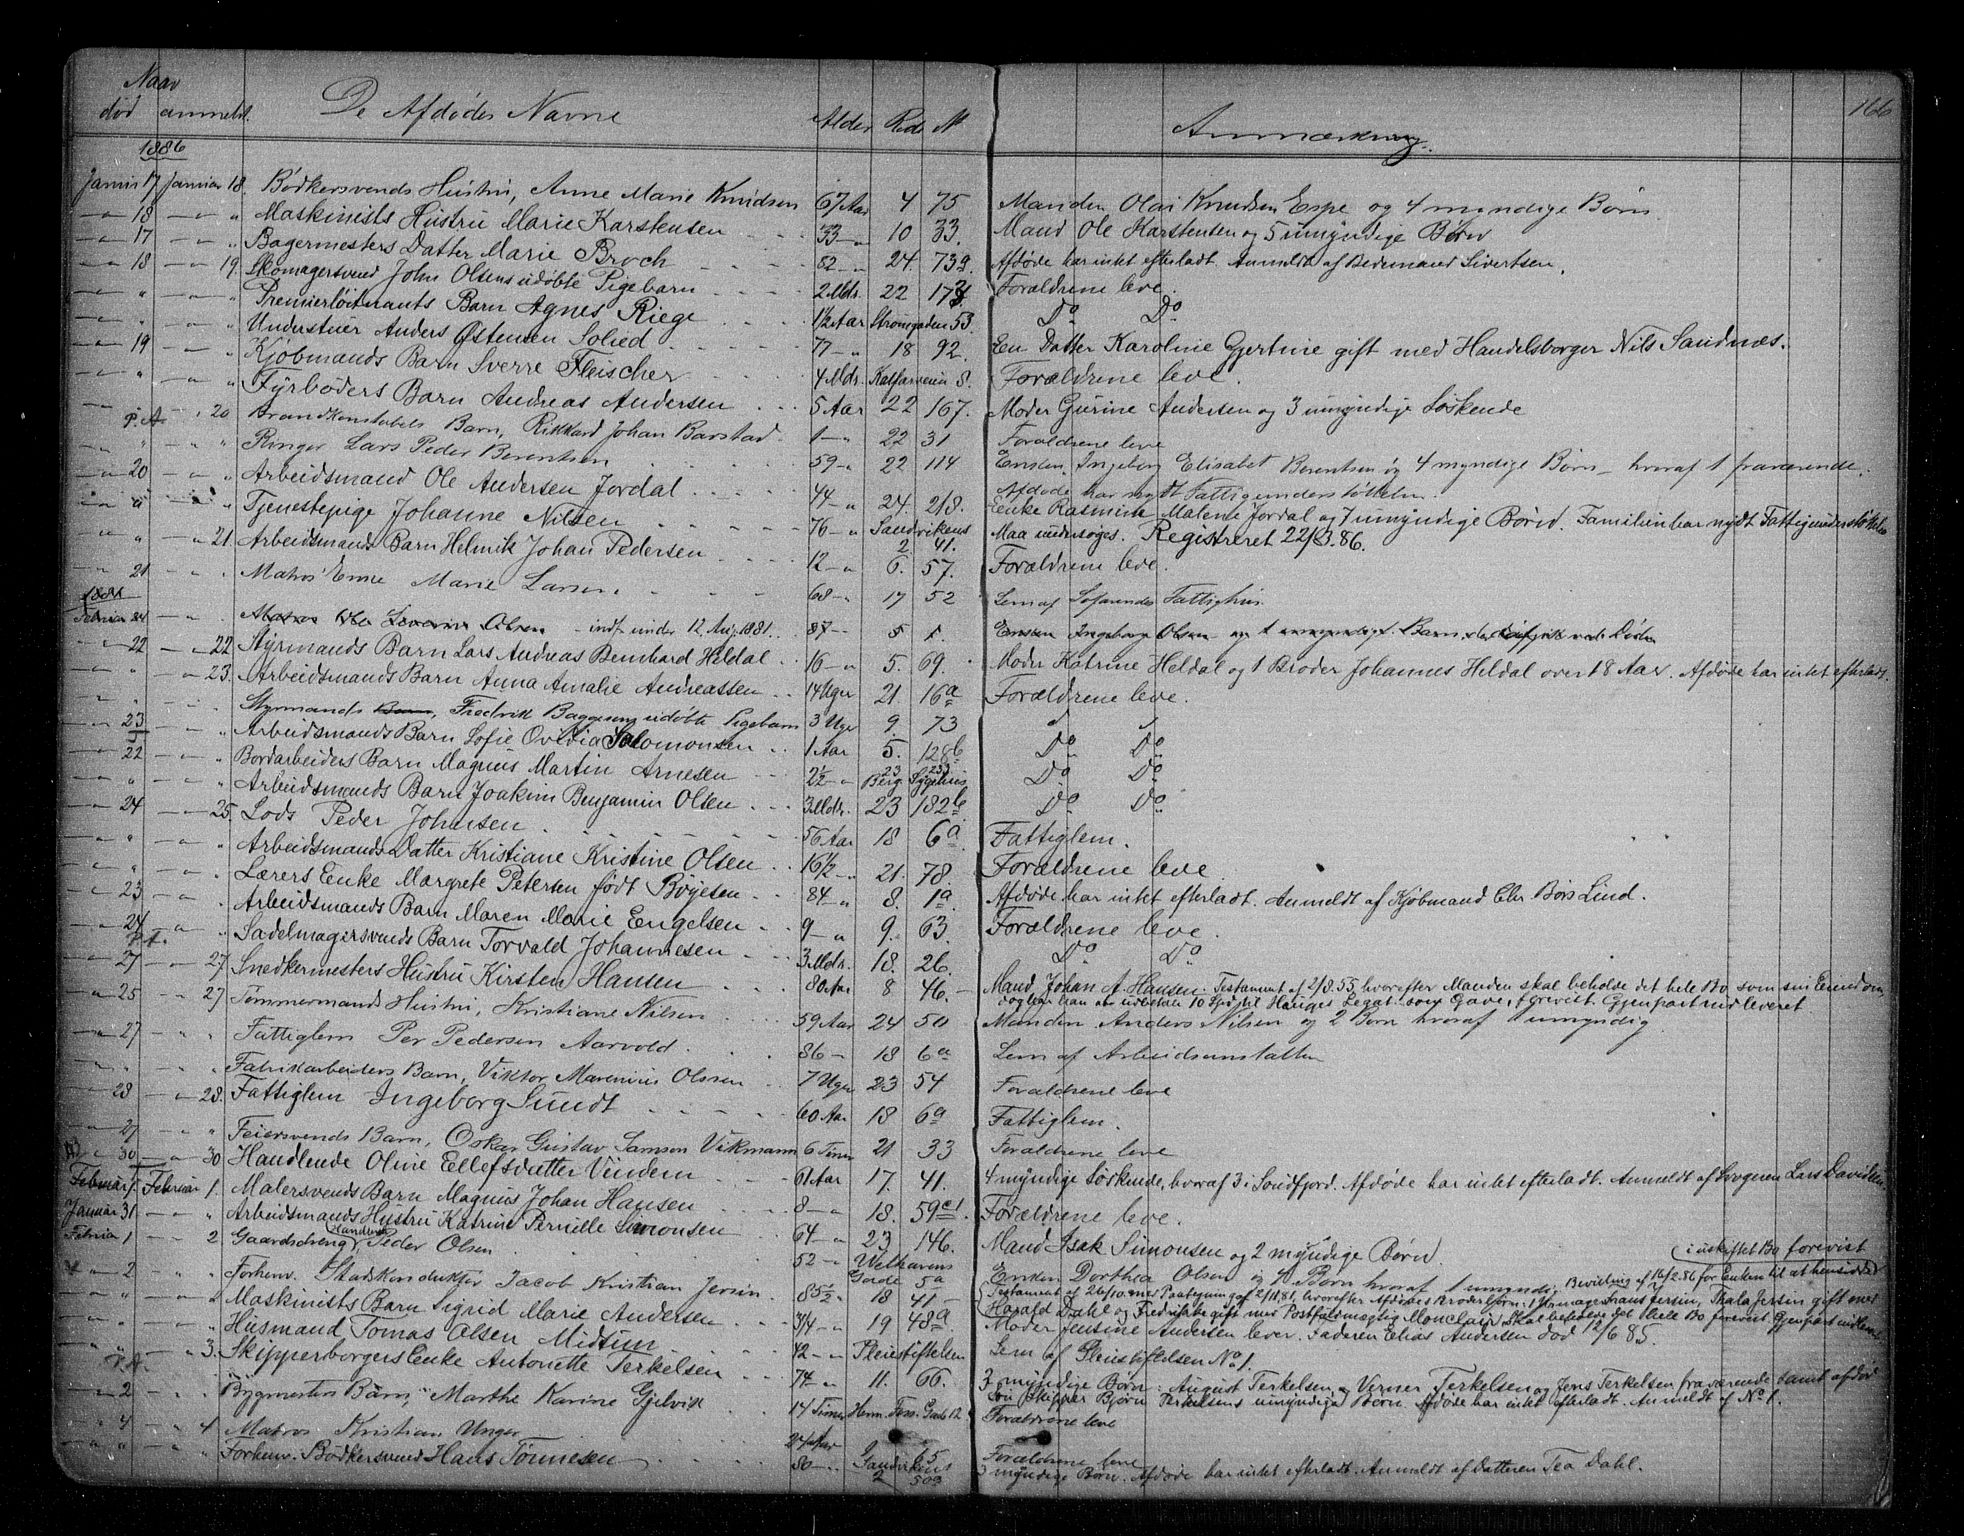 166
Naar
død anmeldt. De Afdødes Navne Alder Rode № Anmærkning.
1886
Januar 17 Januar 18. Bødkersvends Hustru, Anne Marie Knudsen 67 Aar 4 75 Manden Olai Knudsen Espe og 4 myndige Børn.
-"- 18 -"- " Maskinists Hustru Marie Karstensen 33 -"- 10 33. Mand Ole Karstensen og 5 umyndige Børn
-"- 17 -"- " Bagermesters Datter Marie Broch 82 -"- 24. 73a. Afdøde har intet efterladt. Anmeldt af Bedemand Sivertsen.
-"- 18 -"- 19. Skomagersvend John Olsens udøbte Pigebarn 2 Mdr. 22 Forældrene leve.
-"- " -"- " Premierløitnants Barn Agnes Riege 1½ Aar Strangaden 53. Do Do
-"- " -"- " Understuer Anders Østensen Solied 77 -"- 18 92. En Datter Karoline Gjertine gift med Handelsborger Nils Sandnæs.
-"- 19 -"- " Kjøbmands Barn Sverre Fleischer 4 Mdr. Kalfarveien 8. Forældrene leve.
-"- " -"- " Fyrbøders Barn Andreas Andersen 5 Aar 22 167. Moder Gurine Andersen og 3 umyndige Søskende
P.A. -"- 20 Brandkonstabels Barn, Rikkard Johan Barstad 1 -"- 22 31 Forældrene leve
" " -"- " Ringer Lars Peder Berentsen 59 -"- 22 114 Enken Ingeborg Elisabet Berentsen og 4 myndige Børn - hvoraf 1 fraværende.
Afdøde har nydt Fattigunderstøttelse.
-"- 20 -"- " Arbeidsmand Ole Andersen Jordal 44 -"- 24. 218. Enke Rasmine Malene Jordal og 7 umyndige Børn. Familien har nydt Fattigunderstøttelse
-"- " -"- " Tjenestepige Johanne Nilsen 76 -"- Sandvikens 2 41. Maa undersøges. Registreret 22/3.86.
" " -"- 21. Arbeidsmands Barn Helmik Johan Pedersen 12 -"- 6. 57. Forældrene leve.
-"- 21 -"- " Matros Enke Marie Larsen 68 -"- 17 52 Lem af Søfarendes Fattighus
1881
Februar 24 -"- " Matros Ole Severin Olsen - indf. under 12 Aug. 1881. 37 - 5 1. Enken Ingeborg Olsen og 1 umyndigt Barn
-"- 22 -"- 22 Styrmands Barn Lars Andreas Bernhard Heldal 16 -"- 5. 69. Moder Katrine Heldal og 1 Broder Johannes Heldal over 18 Aar. Afdøde har intet efterladt.
-"- " -"- 23. Arbeidsmands Barn Anna Amalie Andreassen 14 Uger 21 16a Forældrene leve.
" " -"- " Styrmands Barn, Fredrik Baggesens udøbte Pigebarn 3 Uger 9. 73 " "
-"- 23 -"- " Arbeidsmands Barn Sofie Ovidia Salomonsen 1 Aar 5. 128b Do Do
-"- 22 -"- " Bordarbeiders Barn Magnus Martin Arnesen 2½ -"- 23 Berg. Sygehus Do Do
-"- " -"- " Arbeidsmands Barn Joakim Benjamin Olsen 3 Mdr. 23 182b Do Do
-"- 24 -"- 25. Lods Peder Johnsen 56 Aar 18 6a Fattiglem.
-"- " -"- " Arbeidsmands Datter Kristiane Kristine Olsen 16½ -"- 21. 78 Forældrene leve.
-"- " -"- " Lærers Enke Margrete Petersen født Bøjesen 84 -"- 8. 1a. Afdøde har intet efterladt. Anmeldt af Kjøbmand Chr Børs Lind.
-"- 23 -"- " Arbeidsmands Barn Maren Marie Engelsen 9 -"- 9. 63. Forældrene leve.
-"- 24 -"- " Sadelmagersvends Barn Torvald Johannesen 3 Mdr. 18. 26. Do Do
P.A.
-"- 27 -"- 27. Snedkermesters Hustru Kirsten Hansen 80 Aar 8 46. Mand, Johan A. Hansen: Testament af 2/8.55, hvorefter Manden skal beholde det hele Bo som sin Eiendom,
dog bør han udbetale 10 Spd til Hauges Legat som Gave, forevist. Gjenpart indleveret
-"- 25 -"- 27 Tømmermands Hustru, Kristiane Nilsen 59 Aar 24 50 Manden Anders Nilsen og 2 Børn hvoraf 1 umyndig
-"- 27 -"- " Fattiglem Per Pedersen Aarvold 86 - 18 6a Lem af Arbeidsanstalten
" " -"- " Fabrikarbeiders Barn, Viktor Marenius Olsen 7 Uger 23 54 Forældrene leve
-"- 28 -"- 28. Fattiglem Ingeborg Sundt 60 Aar 18 6a Fattiglem.
-"- 27 -"- " Feiersvends Barn, Oskar Gustav Samson Vikmann 6 Timer 21 33 Forældrene leve
-"- 30 -"- 30 Handlende Oline Ellefsdatter Vindem 61 Aar 17. 41. 4 myndige Søskende, hvoraf 3 i Sondfjord. Afdøde har intet efterladt. Anmeldt af Svogeren Lars Davidsen.
Februar 1. Februar 1. Malersvends Barn Magnus Johan Hansen 8 -"- 18. 59c1. Forældrene leve.
Januar 31 -"- " Arbeidsmands Hustru Katrine Pernille Simonsen 64 -"- 23 146. Mand Isak Simonsen og 2 myndige Børn.
Februar 1 -"- 2 Gaardsdreng, Peder Olsen 52 -"- Welhavens Gade 5a Enken Dorthea Olsen og 4 Børn hvoraf 1 umyndig. Bevilling af 16/2.86 for Enken til at hensidde i uskiftet Bo forevist
-"- 2 -"- " Forhenv. Stadskonduktør Jacob Kristian Jersin 85½ -"- 18 41 Testament af 26/10 med Paategning af 2/11.81, hvorefter Afdødes Broderbørn:
Harald Dahl og Fredrikke gift med Postfuldmægtig Monclair skal beholde det hele Bo forevist. Gjenpart indlev.
-"- " -"- " Maskinists Barn Sigrid Marie Andersen 3/4 -"- 19 48a Moder Jensine Andersen lever. Faderen Elias Andersen død 12/6 85.
" " -"- " Husmand Tomas Olsen Midtun 42 -"- Pleiestiftelsen Lem af Pleiestiftelsen No 1.
" " -"- 3. Skipperborgers Enke Antonette Terkelsen 74 -"- 11. 66. 3 myndige Børn: August Terkelsen, Verner Terkelsen og Jens Terkelsen fraværende samt afdød
P.A. Søn Skipper Bjørn Terkelsens umyndige Børn. Afdøde har intet efterladt. Anmeldt af No 1.
-"- 2 -"- " Bygmesters Barn, Marthe Karine Gjelvik 14 Timer Herm. Foss. Gade 12 Forældrene leve
-"- 4 -"- 4 Matros Kristian Unger 24 Aar Forældrene leve
-"- " -"- " Forhenv. Bødkersvend Hans Tønnesen 80 -"- Sandvikens 2 50a 3 myndige Børn. Afdøde har intet efterladt. Anmeldt af Datteren Tea Dahl.